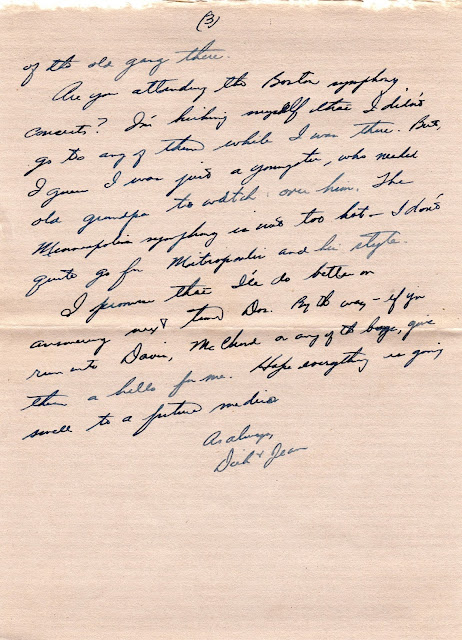 (3)
of the old gang there.
Are you attending the Boston symphony
concerts? I'm kicking myself that I didn't
go to any of them while I was there. But,
I guess I was just a youngster, who needed
old grandpa to watch over him. The
Minneapolis symphony is not too hot – I don't
quite go for Mitropoulis and his style.
I promise that I'll do better on
answering next time Don. By the way – if you
run into Davis, McClure or any of the boys, give
them a hello for me. Hope everything is going
swell to a future medico
As always,
Dick & Jean